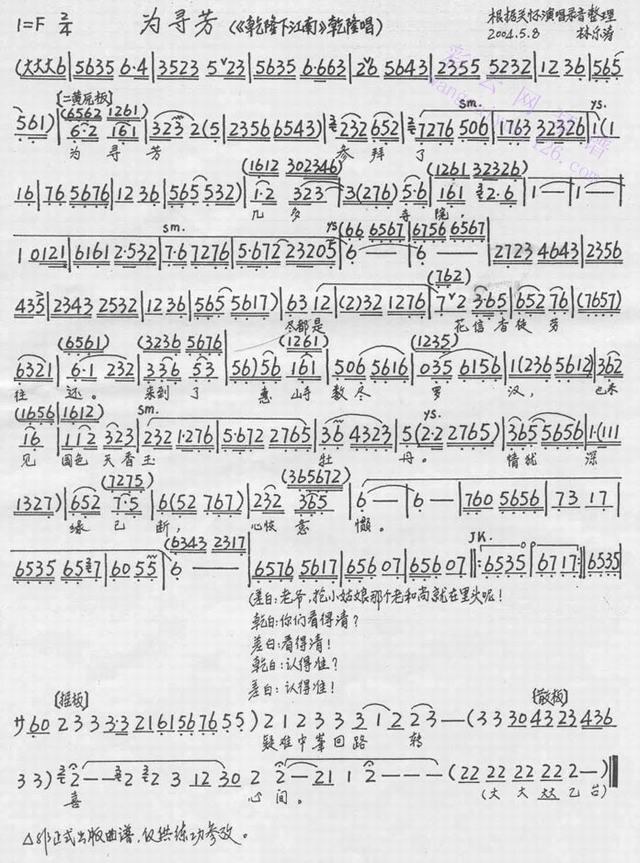 1=F 2/4 为寻芳 (《乾隆下江南》乾隆唱) 根据关怀演唱录音整理
2004.5.8 林乐涛
(大大大6|5635 6·4|3523 5 23|5635 6·663|2 6 5643|2355 5232|12 36|565
[二黄原板] (6562 1261) sm. ys.
561)|6·2 161|323 2(5|2356 6543)|232 652|7276 506|1763 32326|1(1
为 寻 芳 参 拜 了
(1612 302346) (1261 32326)
16|76 5676|12 36|565 532)|1·2 323|3(276) 5·6|161 2·6|1 —|1 —
几 多 寺 院,
sm. ys (66 6567|6756 6567)
1 0121|6161 2·532|7·6 7276|5·672 23205|6 —|6 —|2723 4643|2356
(762)
435|2343 2532|1236|565 5617)|63 12|(2)32 1276|7 2 3·65|652 76|(7657)
尽都是 花信香徒劳
(6561) (3236 5676) (1261) (1235)
6321|6·1 232|336 53|56)56 161|506 5616|035 6156|1(236 5612)|362
往 还。 来到了 惠山寺 数尽 罗 汉, 也未
(1656|1612) sm. ys.
16|112 323|232 1·276|5·672 2765|36 4323|5(2·2 2765)|365 5656|1·(111
见 国色天香玉 牡 丹。 情犹 深
(7275) (365672)
1327)|652 7·5|6(52 767)|232 365|6 —|6 —|760 5656|73 17
缘 已 断, 心恢意 懒。
(6343 2317) JK.
6535 65 7|60 55|6 —|6576 5617|656 07|656 07|6560 07‖:6535|6717:‖6535
(差白:老爷,抢小姑娘那个老和尚就在里头呢!
乾白:你们看得清?
差白:看得清!
乾白:认得准?
差白:认得准!
[摇板] [散板]
サ60 2 3 3 3·3 2 1 6 1 5 6 7 6 5 5) 2 1 2 3 3 3 1 2 2 3 — (3 3 30 43 23 436
疑难中峯回路 转
3 3) 2 — — 2 2 3 12 30 2 2 — 21 1 2 — — — (22 22 22 22 2 —)
喜 心 间。 (大 大 大大 乙 台)
△非正式出版曲谱,仅供练功参改。